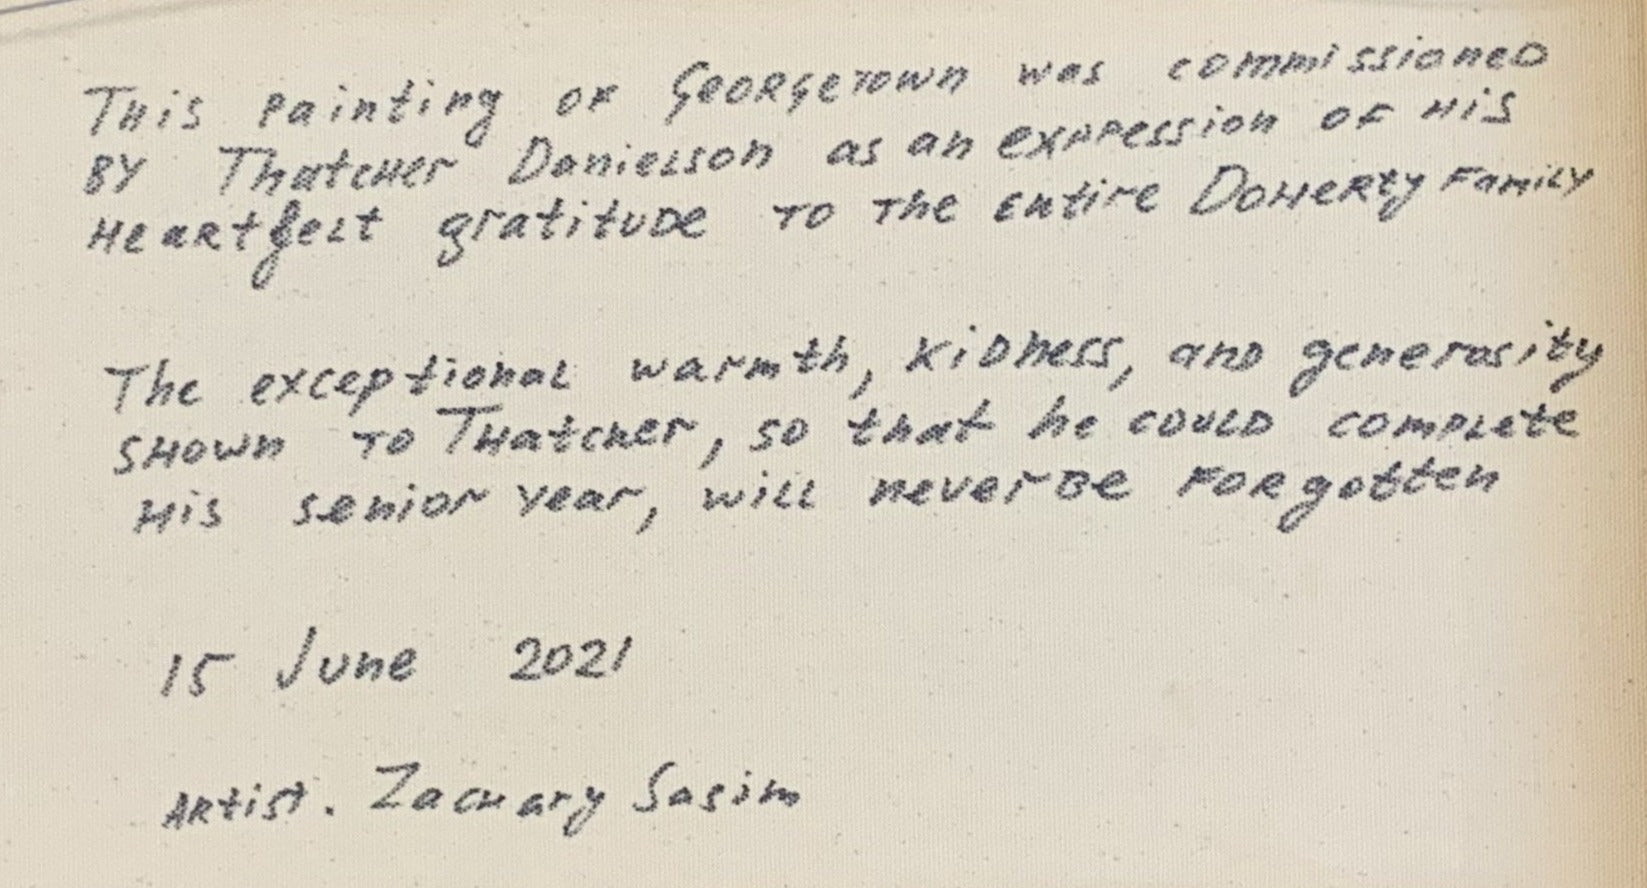 This painting of Georgetown was commissioned
BY Thatcher Danielson as an expression of His
Heartfelt gratitude to the entire Doherty Family
The exceptional warmth, Kidness, and generosity
shown to Thatcher, so that he could complete
His senior year, will never Be Forgotten
15 June 2021
Artist. Zachary Sasim